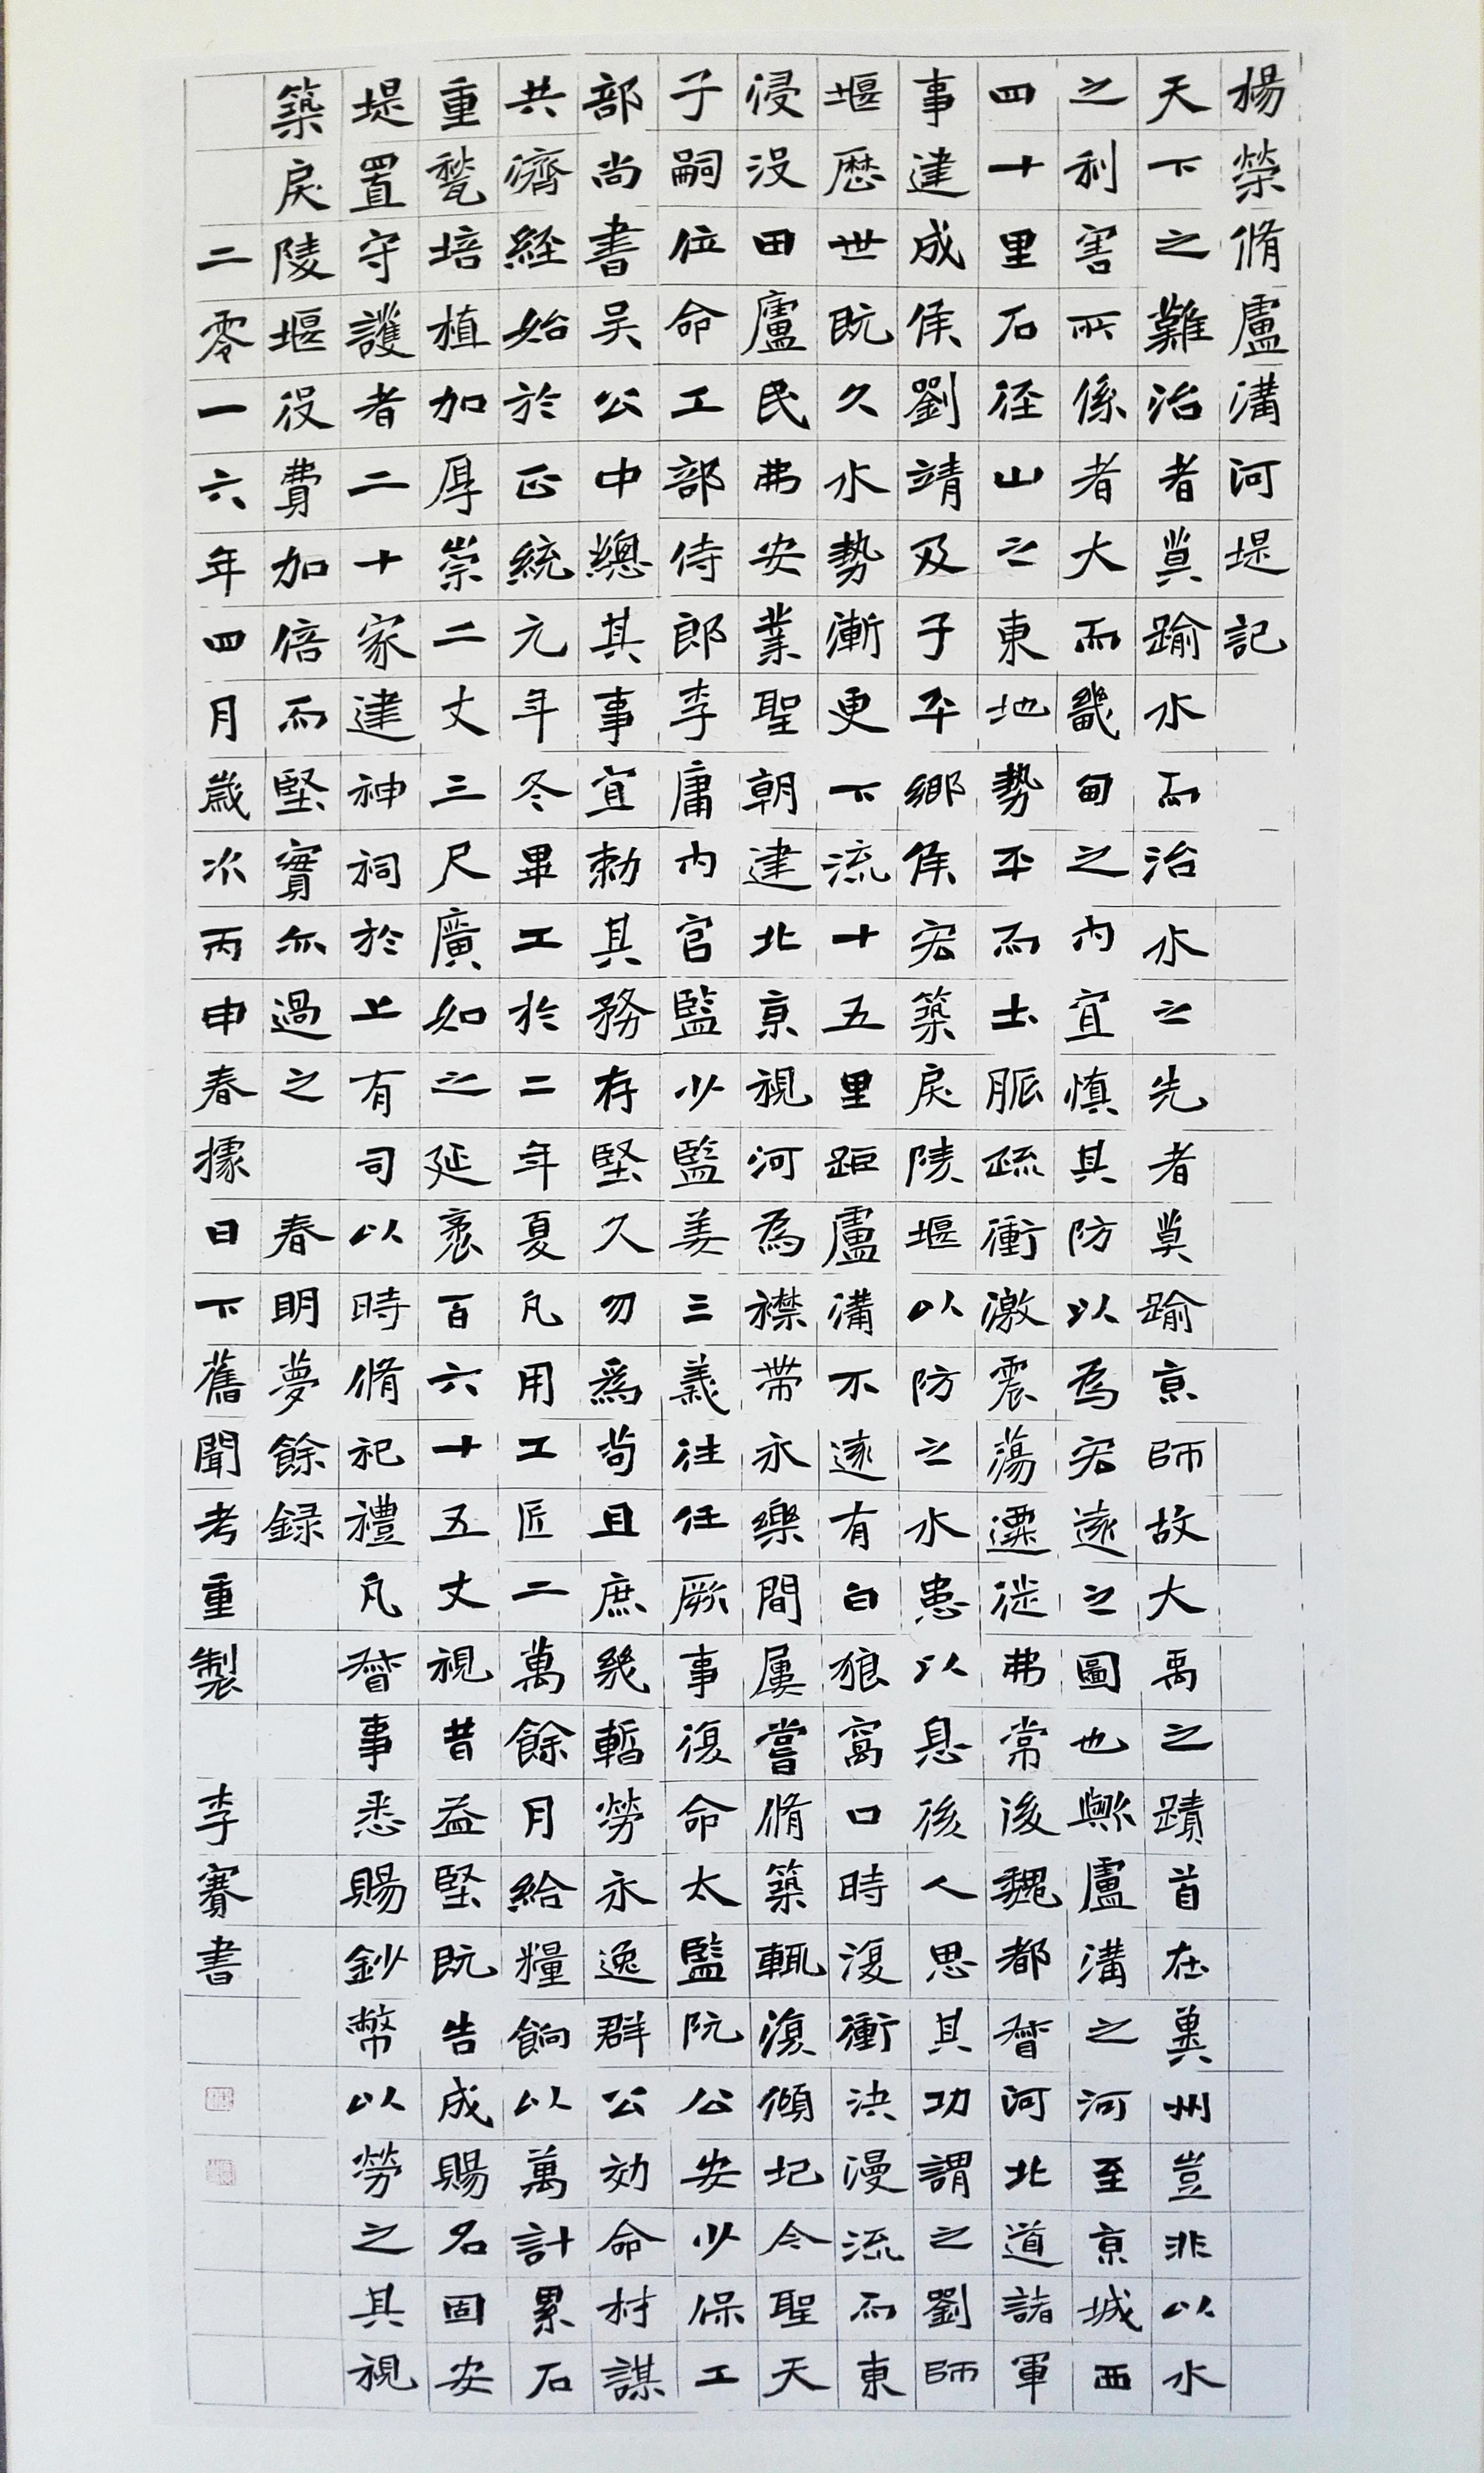 楊榮脩盧溝河堤記
天下之難治者莫踰水而治水之先者莫踰京師故大禹之蹟首在冀州豈非以水
之利害所係者大而畿甸之內宜慎其防以為宏遠之圖也歟盧溝之河至京城西
四十里石徑山之東地勢平而土脈疏衝激震蕩遷徙弗常後魏都督河北道諸軍
事建成侯劉靖及子平鄉侯宏築戾陵堰以防之水患以息後人思其功謂之劉師
堰歷世既久水勢漸更下流十五里距盧溝不遠有白狼窩口時復衝決漫流而東
浸没田廬民弗安業聖朝建北京視河為襟帶永樂間屢嘗脩築輒復傾圮今聖天
子嗣位命工部侍郎李庸內官監少監姜三義往任厥事復命太監阮公安少保工
部尚書吴公中總其事宜勑其務存堅久勿爲苟且庶幾暫勞永逸群公効命材謀
共濟經始於正統元年冬畢工於二年夏凡用工匠二萬餘月給糧餉以萬計累石
重甃培植加厚崇二丈三尺廣如之延袤百六十五丈視昔益堅既告成賜名固安
堤置守護者二十家建神祠於上有司以時脩祀禮凡督事悉賜鈔幣以勞之其視
築戾陵堰役費加倍而堅實亦過之 春明夢餘録
二零一六年四月歲次丙申春據日下舊聞考重製 李賽書